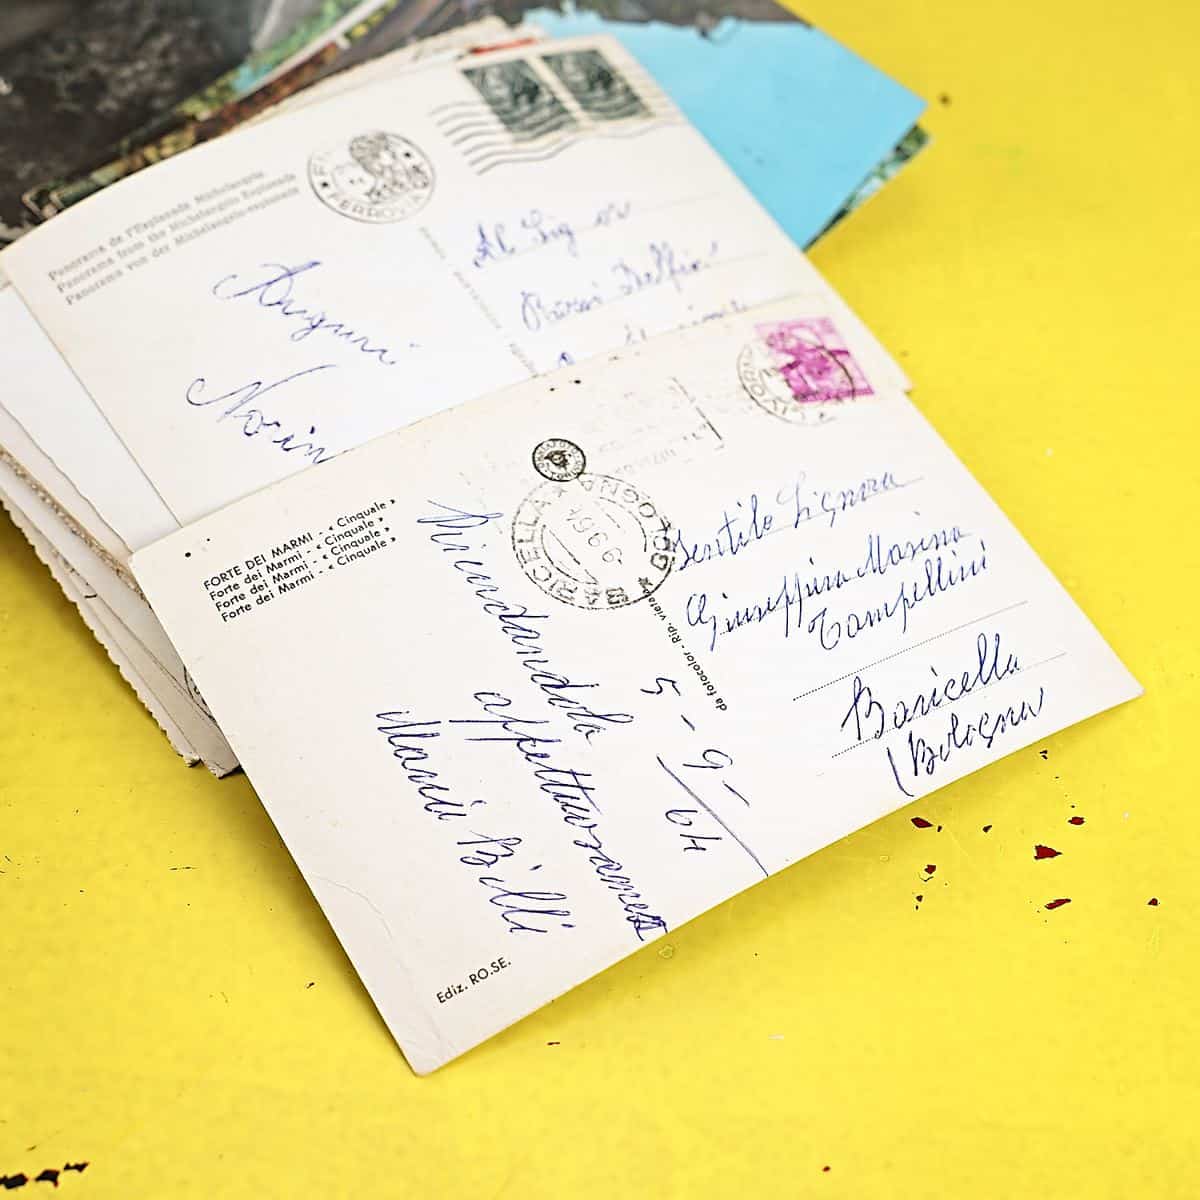 Panorama de l'Esplanade Michelangelo
Panorama from the Michelangelo Esplanade
Panorama von der Michelangelo-esplanade
FERROVIA
Auguri
Norin
Al Sig
FORTE DEI MARMI - « Cinquale »
Forte dei Marmi - « Cinquale »
Forte dei Marmi - « Cinquale »
Forte dei Marmi - « Cinquale »
BARICELLA * BOLOGNA *
9 9 64
Ricordandola
affettuosament
Billi
5-9-
64
Ediz. RO.SE.
da fotocolor - Rip. vietata
Gentile Signora
Giuseppina Marina
Campellini
Baricella
(Bologna